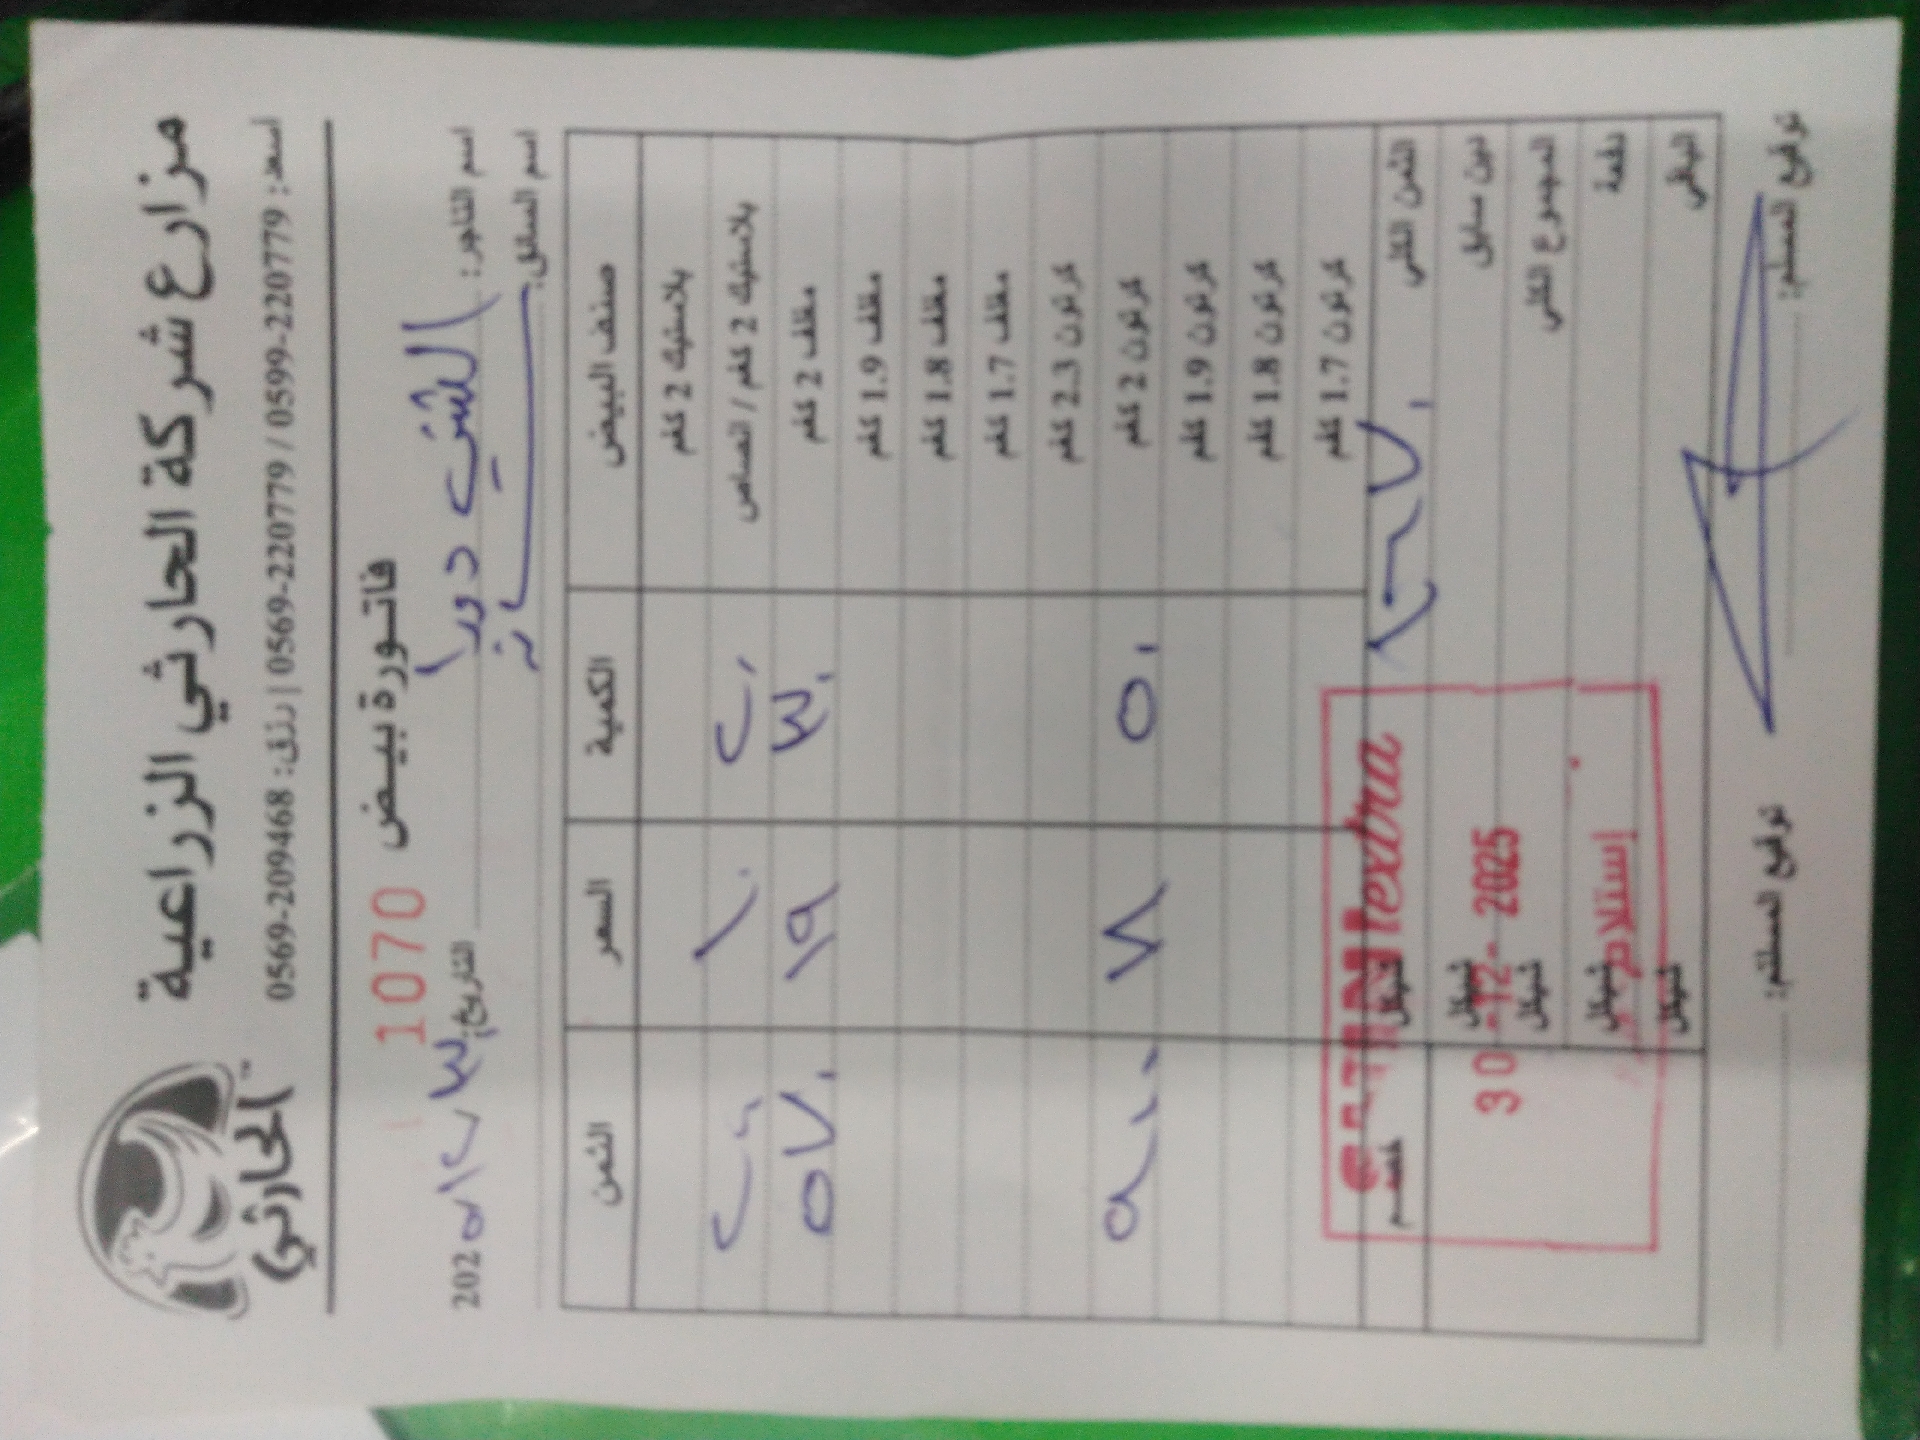 مزارع شركة الحارثي الزراعية
اسعد: 220779-0599 / 220779-0569 | رزق: 209468-0569
الحارثي
فاتورة بيض 1070
اسم التاجر: دورا التاريخ: ٣٠/١٢/202٥
اسم السائق:
صنف البيض الكمية السعر الثمن
بلاستيك 2 كغم
بلاستيك 2 كغم / ٢٠ ١٠ ٢٠٠
مغلف 2 كغم ٣٠ ١٩ ٥٧٠
مغلف 1.9 كغم
مغلف 1.8 كغم
مغلف 1.7 كغم
كرتون 2.3 كغم
كرتون 2 كغم ٥٠ ١٨ ٩٠٠
كرتون 1.9 كغم
كرتون 1.8 كغم
كرتون 1.7 كغم
الثمن الكلي ١٦٧٠ شيكل خصم
دين سابق شيكل
المجموع الكلي شيكل
دفعة شيكل
الباقي شيكل
extra
30-12-2025
إستلام
توقيع المسلم: توقيع المستلم: